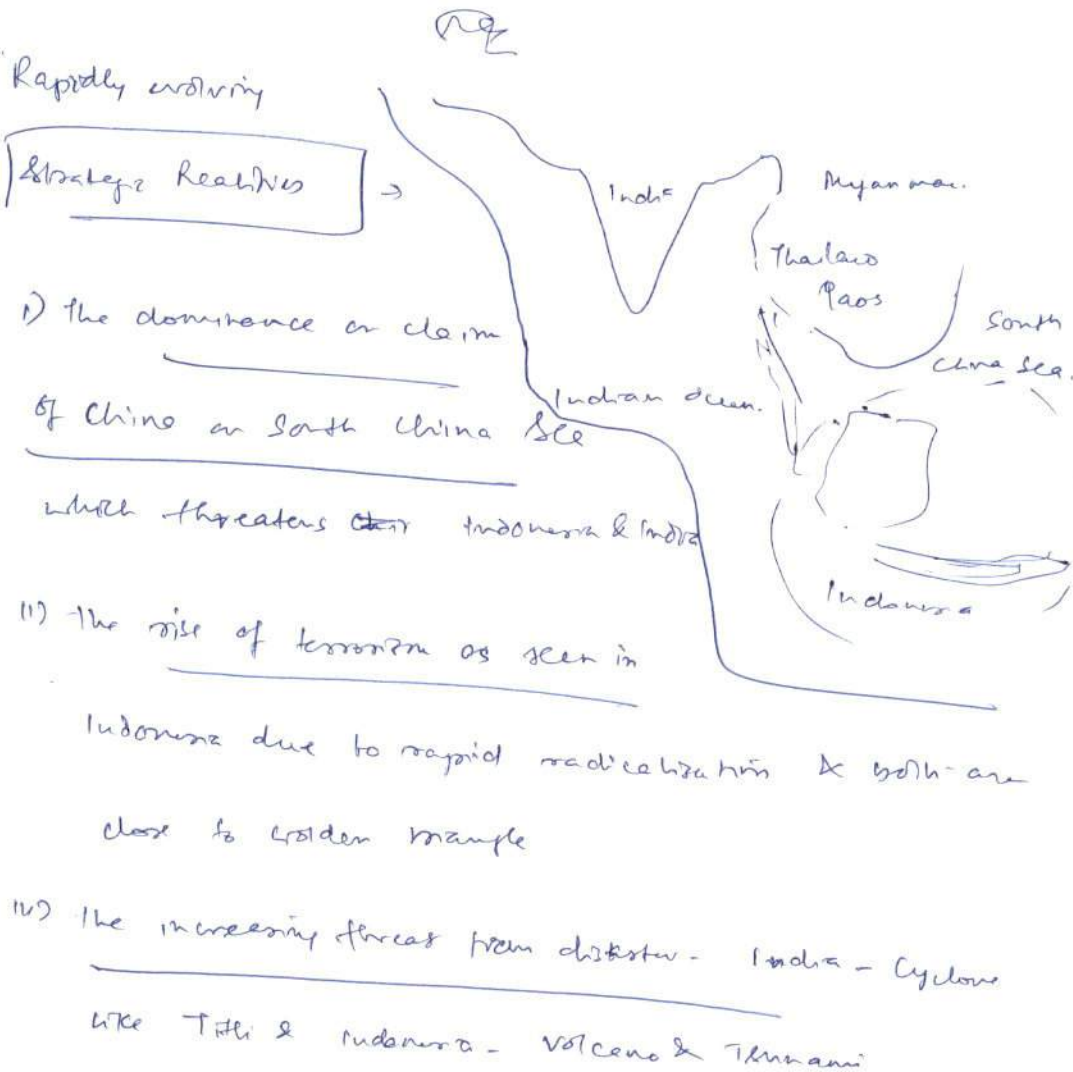 Rapidly evolving
Strategic Realities →
India
Myanmar.
Thailand
Laos
South
China Sea.
Indian Ocean.
Indonesia
1) The dominance or claim
of China on South China Sea
which threatens Indonesia & India
11) The rise of terrorism as seen in
Indonesia due to rapid radicalization & both are
close to Golden triangle
The increasing threat from disaster - India - Cyclone
like Titli & Indonesia - Volcano & Tsunami